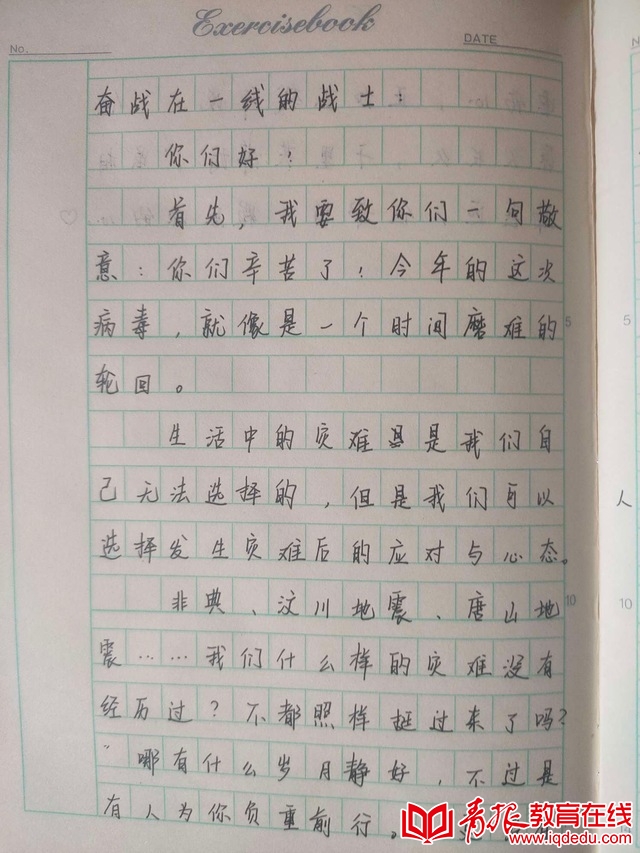 Exercisebook
No.
DATE
奋战在一线的战士：
你们好！
首先，我要致你们一句敬
意：你们辛苦了！今年的这次
病毒，就像是一个时间磨难的
5
轮回。
生活中的灾难是我们自
己无法选择的，但是我们可以
选择发生灾难后的应对与心态。
非典、汶川地震、唐山地
10
震……我们什么样的灾难没有
经历过？不都照样挺过来了吗？
“哪有什么岁月静好，不过是
有人为你负重前行。
5
人
10
青报教育在线
www.iqdedu.com